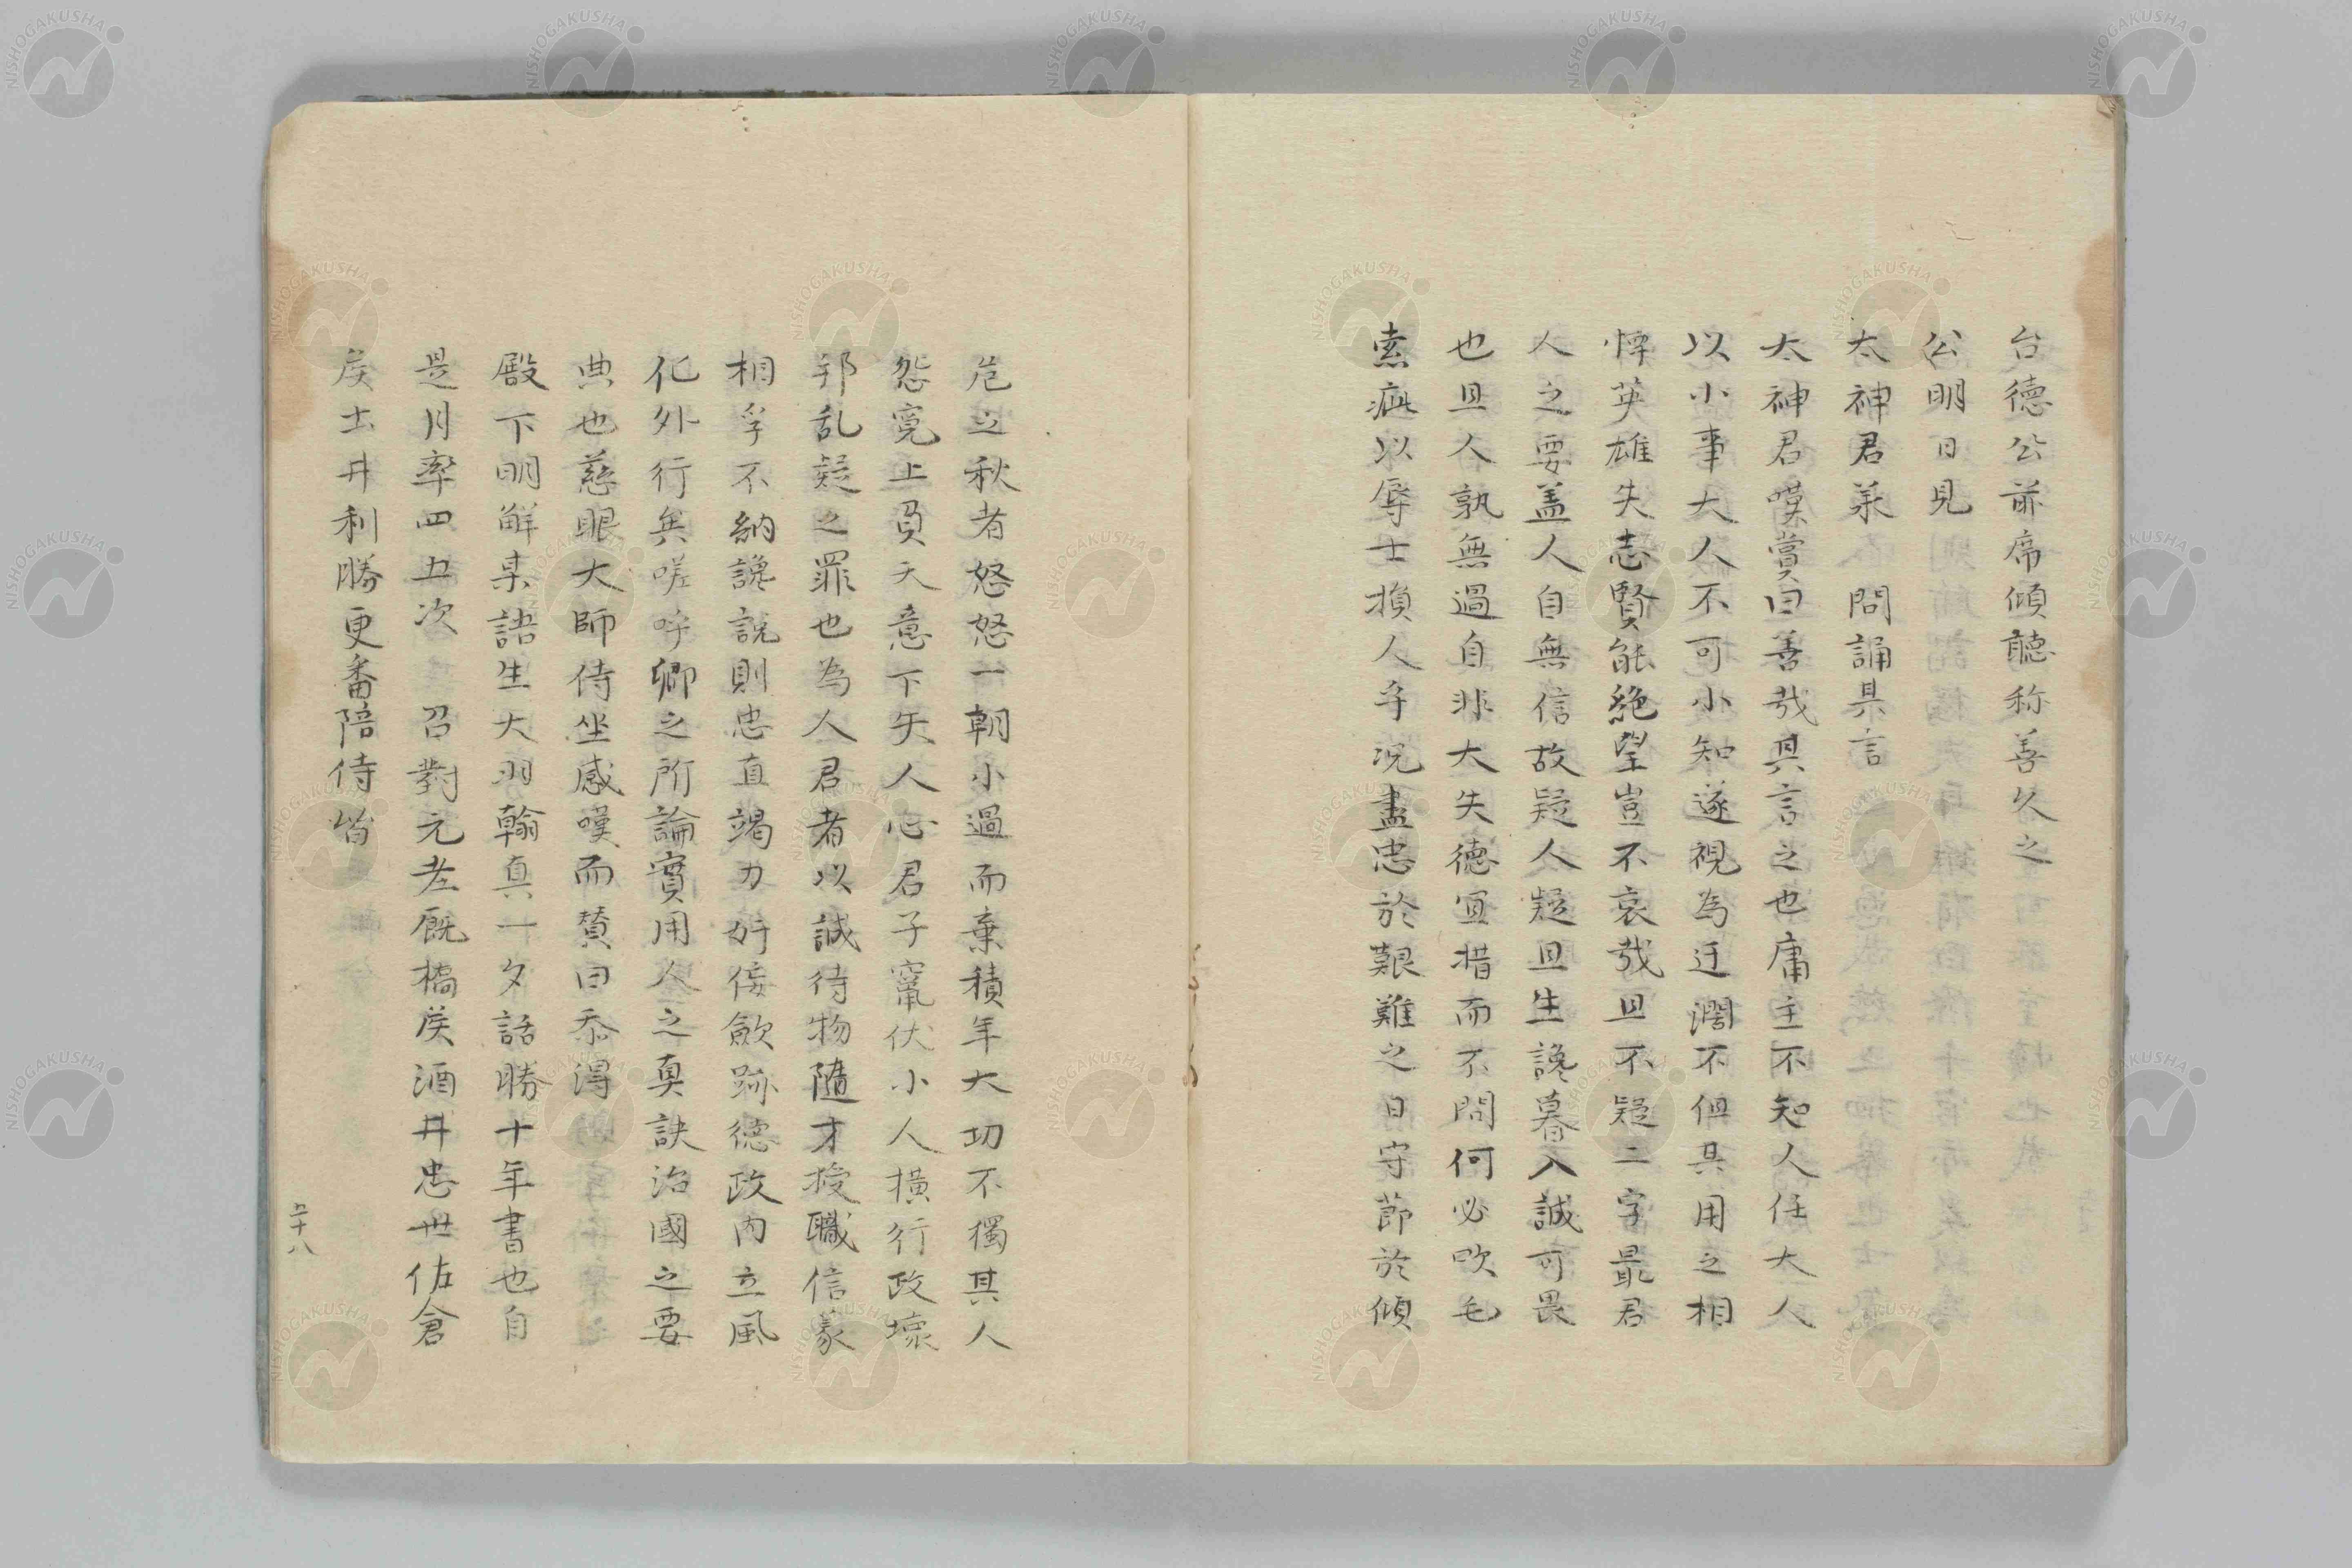 台德公前席傾聽称善久之
公明日見
太神君羕 問誦具言
太神君嘆賞曰善哉具言之也庸主不知人任大人
以小事大人不可小知遂視為迂濶不俱其用之相
悖英雄失志賢能絶望豈不哀哉且不疑二字最君
人之要盖人自無信故疑人疑且生讒暮入誠可畏
也且人孰無過自非大失德宜措而不問何必吹毛
索疵以辱士損人乎况盡忠於艱難之日守節於傾
危之秋者怒怒一朝小過而棄積年大功不獨其人
怨寃上負天意下失人心君子竄伏小人橫行政壞
邦乱疑之罪也為人君者以誠待物隨才授職信義
相孚不納讒說則忠直竭力奸佞歛跡德政内立風
化外行矣嗟呼卿之所論實用人之真訣治國之要
典也慈眼大師侍坐感嘆而賛曰忝得
殿下明鮮某語生大羽翰真一夕話勝十年書也自
是月率四五次 召對元老厩橋侯酒井忠世佐倉
侯土井利勝更番陪侍皆
五十八
NISHOGAKUSHA